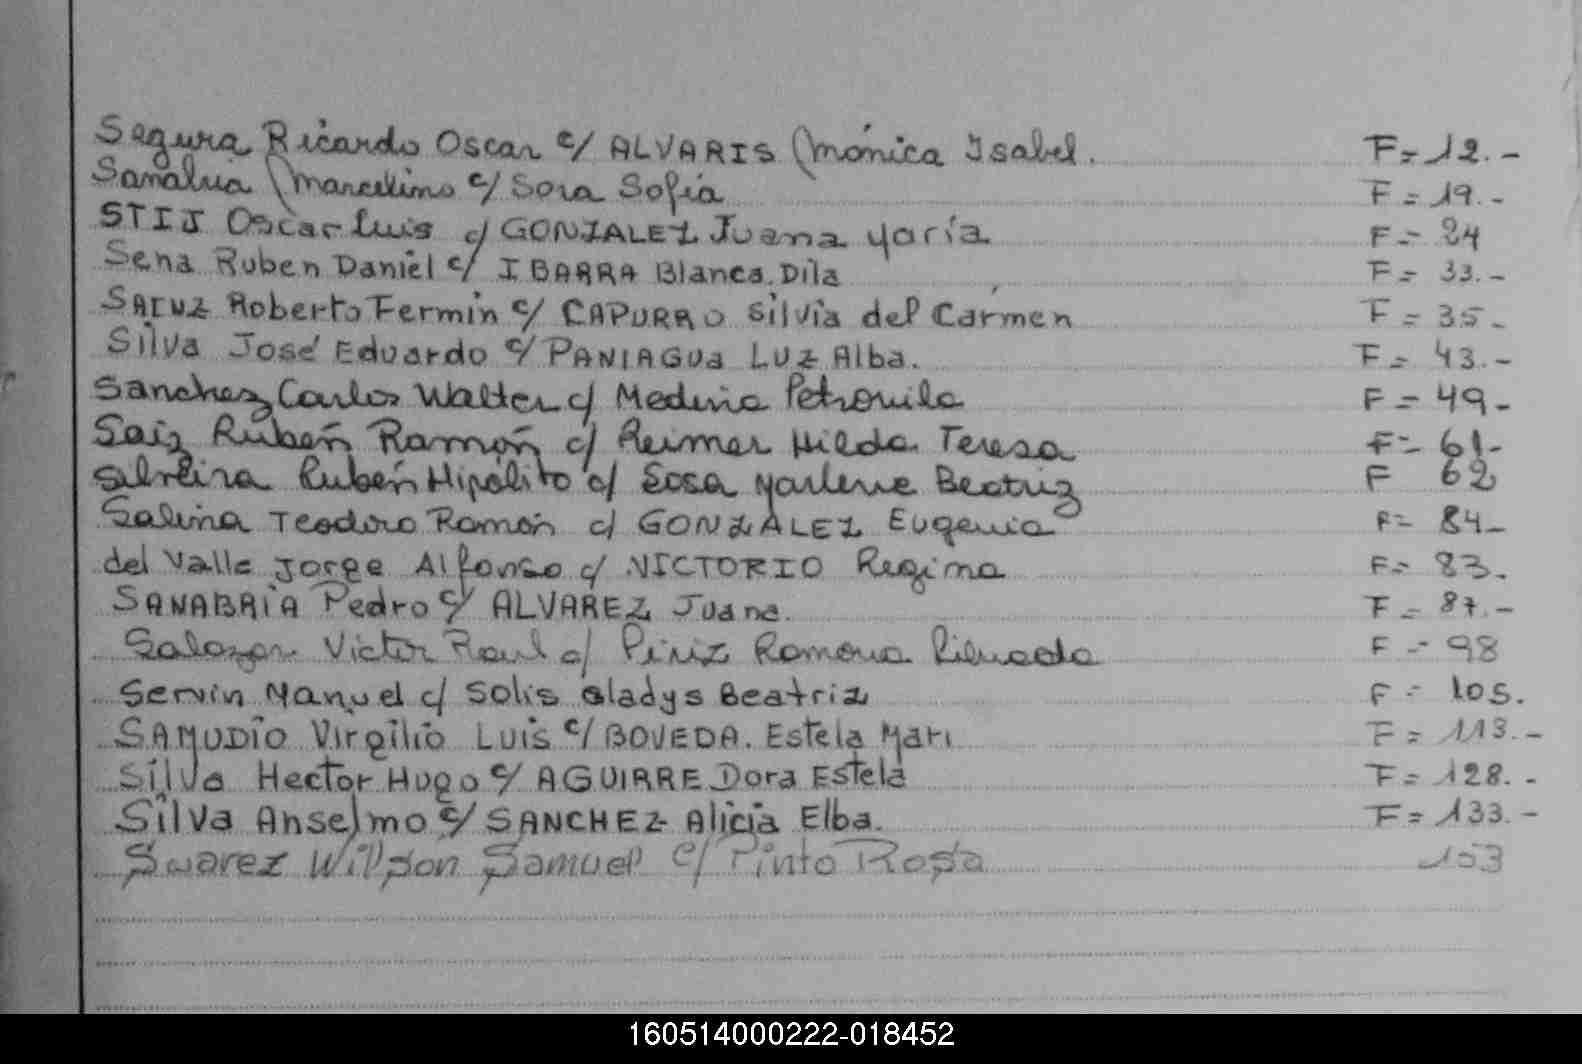 Segura Ricardo Oscar c/ ALVARIS Mónica Isabel. F=12.-
Sanabria Marcelino c/ Sosa Sofia F=19.-
STIJ Oscar Luis c/ GONZALEZ Juana María F=24
Sena Ruben Daniel c/ IBARRA Blanca Dila F=33.-
Roberto Fermin c/ CAPURRO Silvia del Carmen F=35-
Silva José Eduardo c/ PANIAGUA LUZ Alba. F=43.-
Sanchez Carlos Walter c/ Medina Petronila F=49-
Saiz Rubén Ramón c/ Reimer Hilda Teresa F=61-
Silveira Rubén Hipólito c/ Sosa Marlene Beatriz F 62
Salina Teodoro Ramón c/ GONZALEZ Eugenia F=84-
del Valle Jorge Alfonso c/ VICTORIO Regina F=83.
SANABRIA Pedro c/ ALVAREZ Juana. F=87.-
Salazar Victor Raul c/ Piriz Ramona F=98
Servin Manuel c/ Solis Gladys Beatriz F=105.
SAMUDIO Virgilio Luis c/ BOVEDA. Estela Mari F=113.-
Silva Hector Hugo c/ AGUIRRE Dora Estela F=128.-
Silva Anselmo c/ SANCHEZ Alicia Elba. F=133.-
Suarez Willson Samuel c/ Pinto Rosa 153
160514000222-018452